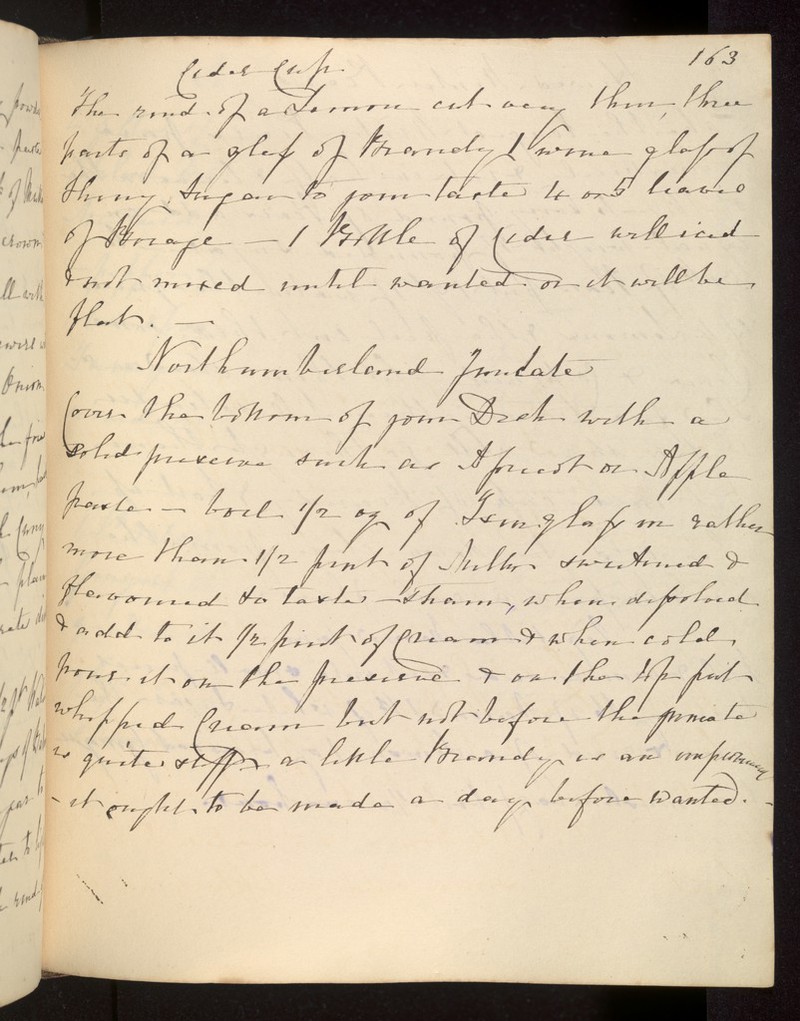 163
Cider Cup
The rind of a Lemon cut very thin, three
parts of a glass of Brandy 1 wine glass of
Sherry, Sugar to your taste 4 or 5 leaves
of Borage — 1 Bottle of Cider well iced
& not mixed until wanted or it will be
flat. —
Northumberland
Cover the bottom of your Dish with a
solid preserve such as Apricot or Apple
paste — boil 1/2 oz of Isinglass in rather
more than 1/2 pint of Milk sweetened &
flavoured to taste — when dissolved
& add to it 1/2 pint of Cream & when cold
pour it on the preserve & on the top put
whipped Cream but not before the
is quite stiff a little Brandy is an
- it ought to be made a day before wanted. -
powde
paste
of Milk
crown
ll with
Onion
plain
to
rind